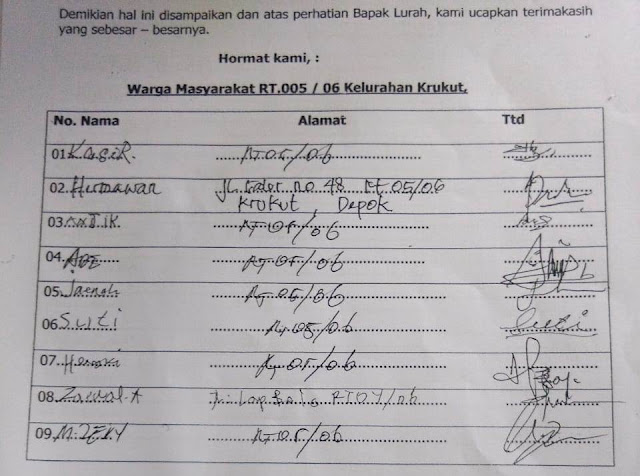 Demikian hal ini disampaikan dan atas perhatian Bapak Lurah, kami ucapkan terimakasih
yang sebesar – besarnya.
Hormat kami, :
Warga Masyarakat RT.005 / 06 Kelurahan Krukut,
No. Nama Alamat Ttd
01 KosiR. RT 05/06
02. Hermawan JL. no. 48 Rt 05/06
Krukut, Depok
03. RT 05/06
04. ADE RT 05/06
05. Jaenah RT 05/06
06 Suti RT 05/06 Suti
07. RT 05/06
08. Zainal A RT 04/06
09. M. ZEKY RT 05/06